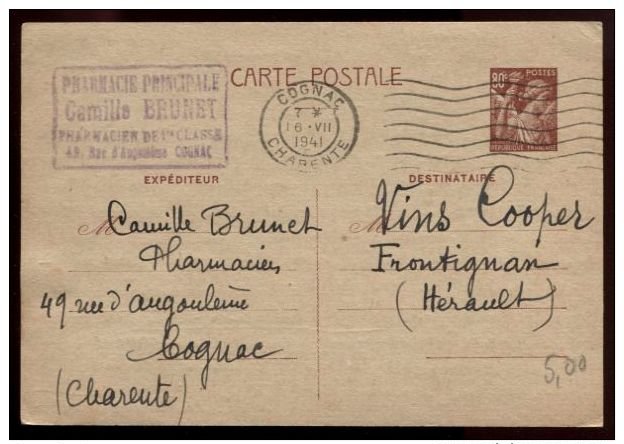 PHARMACIE PRINCIPALE
Camille BRUNET
PHARMACIEN DE 1re CLASSE
49, Rue d'Angoulême COGNAC
CARTE POSTALE
COGNAC
7 *
16 · VII
1941
CHARENTE
80c POSTES
REPUBLIQUE FRANÇAISE
EXPÉDITEUR
M Camille Brunet
Pharmacien
49 rue d'angoulême
Cognac
(Charente)
DESTINATAIRE
M Vins Cooper
Frontignan
(Hérault)
5,00